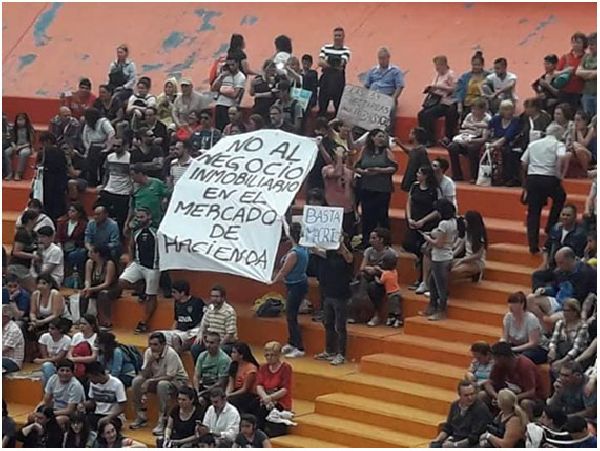 NO AL
NEGOCIO
INMOBILIARIO
EN EL
MERCADO
DE
HACIENDA
BASTA
MACRI